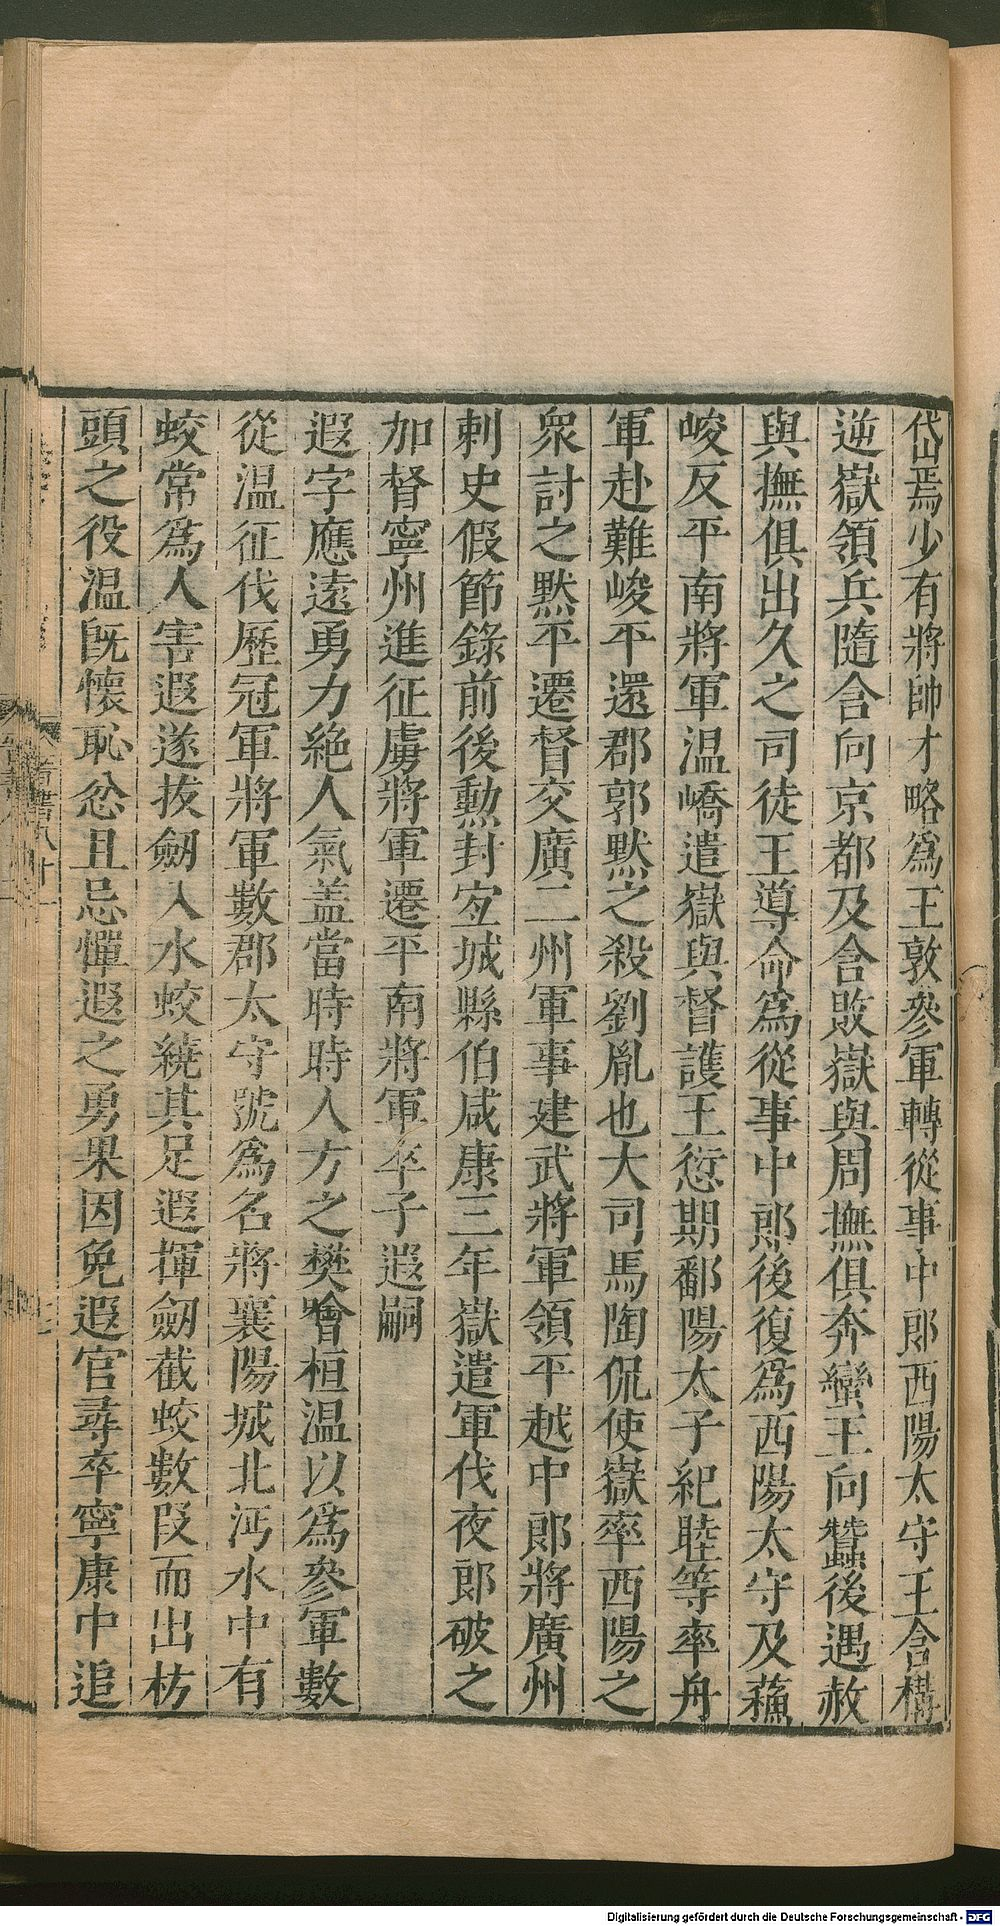 岱焉少有將帥才略爲王敦參軍轉從事中郎西陽太守王含構
逆嶽領兵隨含向京都及含敗嶽與周撫俱奔蠻王向蠶後遇赦
與撫俱出久之司徒王導命爲從事中郎後復爲西陽太守及蘓
峻反平南將軍温嶠遣嶽與督護王愆期鄱陽太子紀睦等率舟
軍赴難峻平還郡郭黙之殺劉胤也大司馬陶侃使嶽率西陽之
衆討之黙平遷督交廣二州軍事建武將軍領平越中郎將廣州
刺史假節錄前後勳封宐城縣伯咸康三年嶽遣軍伐夜郎破之
加督寧州進征虜將軍遷平南將軍卒子遐嗣
遐字應逺勇力絶人氣盖當時時人方之樊噲桓温以爲參軍數
從温征伐歷冠軍將軍數郡太守號爲名將襄陽城北沔水中有
蛟常爲人害遐遂拔劒入水蛟繞其足遐揮劒截蛟數段而出枋
頭之役温旣懷恥忿且忌憚遐之勇果因免遐官尋卒寧康中追
Digitalisierung gefördert durch die Deutsche Forschungsgemeinschaft - DFG